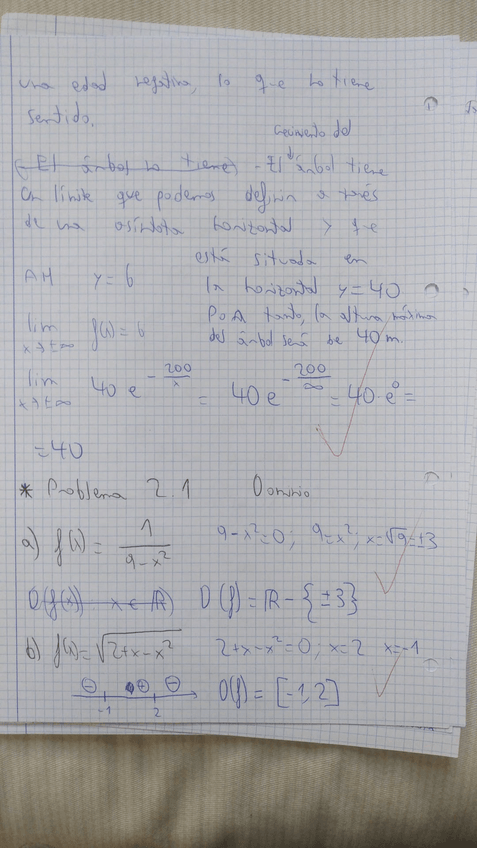 una edad negativa, lo que no tiene
sentido.
crecimiento del
(El árbol no tiene) - El árbol tiene
un límite que podemos definir a través
de una asíntota horizontal y que
está situada en
la horizontal y=40
Por tanto, la altura máxima
del árbol será de 40 m.
AH y=b
lim x→±∞ f(x)=b
lim x→±∞ 40 e^(-200/x) = 40 e^(-200/∞) = 40·e^0 =
=40
* Problema 2.1 Dominio
a) f(x) = 1/(9-x²) 9-x²=0; 9=x²; x=√9=±3
D(f(x)) = x ∈ ℝ) D(f) = ℝ - {±3}
b) f(x)=√(2+x-x²) 2+x-x²=0; x=2 x=-1
⊖ ⊕ ⊖
-1 2
D(f) = [-1,2]